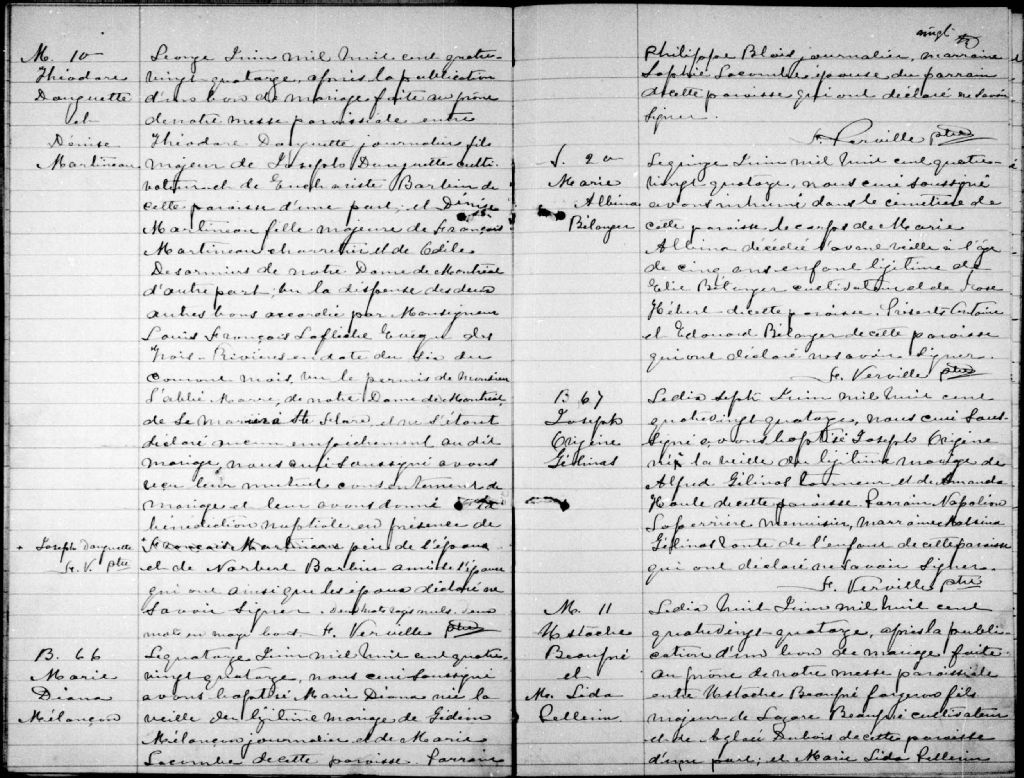 M. 10
Théodore
Dauguette
et
Dénise
Martineau
Le onze Juin mil huit cent quatre-
vingt quatorze, après la publication
d'un bon de mariage faite au prône
de notre messe paroissiale entre
Théodore Dauguette journalier fils
majeur de Joseph Dauguette culti-
vateur et de Euchariste Barbin de
cette paroisse d'une part; et Dénise
Martineau fille majeure de François
Martineau charretier et de Odile
Desormiers de notre Dame de Montréal
d'autre part; vu la dispense des deux
autres bans accordée par Monseigneur
Louis François Laflèche Evêque des
Trois-Rivières en date du six du
courant mois, vu le permis de Monsieur
L'abbé Marre, de notre Dame de Montréal,
de Ste Clare, et ne s'étant
déclaré aucun empêchement au dit
mariage, nous curé soussigné avons
reçu leur mutuel consentement de
mariage et leur avons donné la
bénédiction nuptiale en présence de
+ Joseph Dauguette
H. V. ptre
François Martineau père de l'épouse
et de Norbert Barbin ami de l'époux
qui ont ainsi que les époux déclaré ne
savoir signer. deux mots rayés nuls. deux
mots en marge bons. H. Verville ptre
B. 66
Marie
Diana
Mélançon
Le quatorze Juin mil huit cent quatre-
vingt quatorze, nous curé soussigné
avons baptisé Marie Diana née la
veille du légitime mariage de Gédéon
Mélançon journalier et de Marie
Lacombe de cette paroisse. Parrain
vingt
Philippe Blais journalier, marraine
Sophie Lacombe épouse du parrain
de cette paroisse qui ont déclaré ne savoir
signer.
H. Verville ptre
S. 20
Marie
Albina
Bélanger
Le quinze Juin mil huit cent quatre-
vingt quatorze, nous curé soussigné
avons inhumé dans le cimetière de
cette paroisse le corps de Marie
Albina décédée l'avant veille à l'âge
de cinq ans enfant légitime de
Elie Bélanger cultivateur et de Rose
Hébert de cette paroisse. Présents
et Edouard Bélanger de cette paroisse
qui ont déclaré ne savoir signer.
H. Verville ptre
B 67
Joseph
Origène
Gélinas
Le dix sept Juin mil huit cent
quatrevingt quatorze, nous curé sous-
signé avons baptisé Joseph Origène
né la veille du légitime mariage de
Alfred Gélinas tanneur et de Amanda
de cette paroisse. Parrain Napoléon
Laperrière menuisier, marraine
Gélinas tante de l'enfant de cette paroisse
qui ont déclaré ne savoir signer.
H. Verville ptre
M. 11
Ustache
Beaupré
et
M. Lida
Pellerin
Le dix huit Juin mil huit cent
quatrevingt quatorze, après la publi-
cation d'un bon de mariage faite
au prône de notre messe paroissiale
entre Ustache Beaupré forgeron fils
majeur de Lazare Beaupré cultivateur
et de Aglaé Dubois de cette paroisse
d'une part; et Marie Lida Pellerin